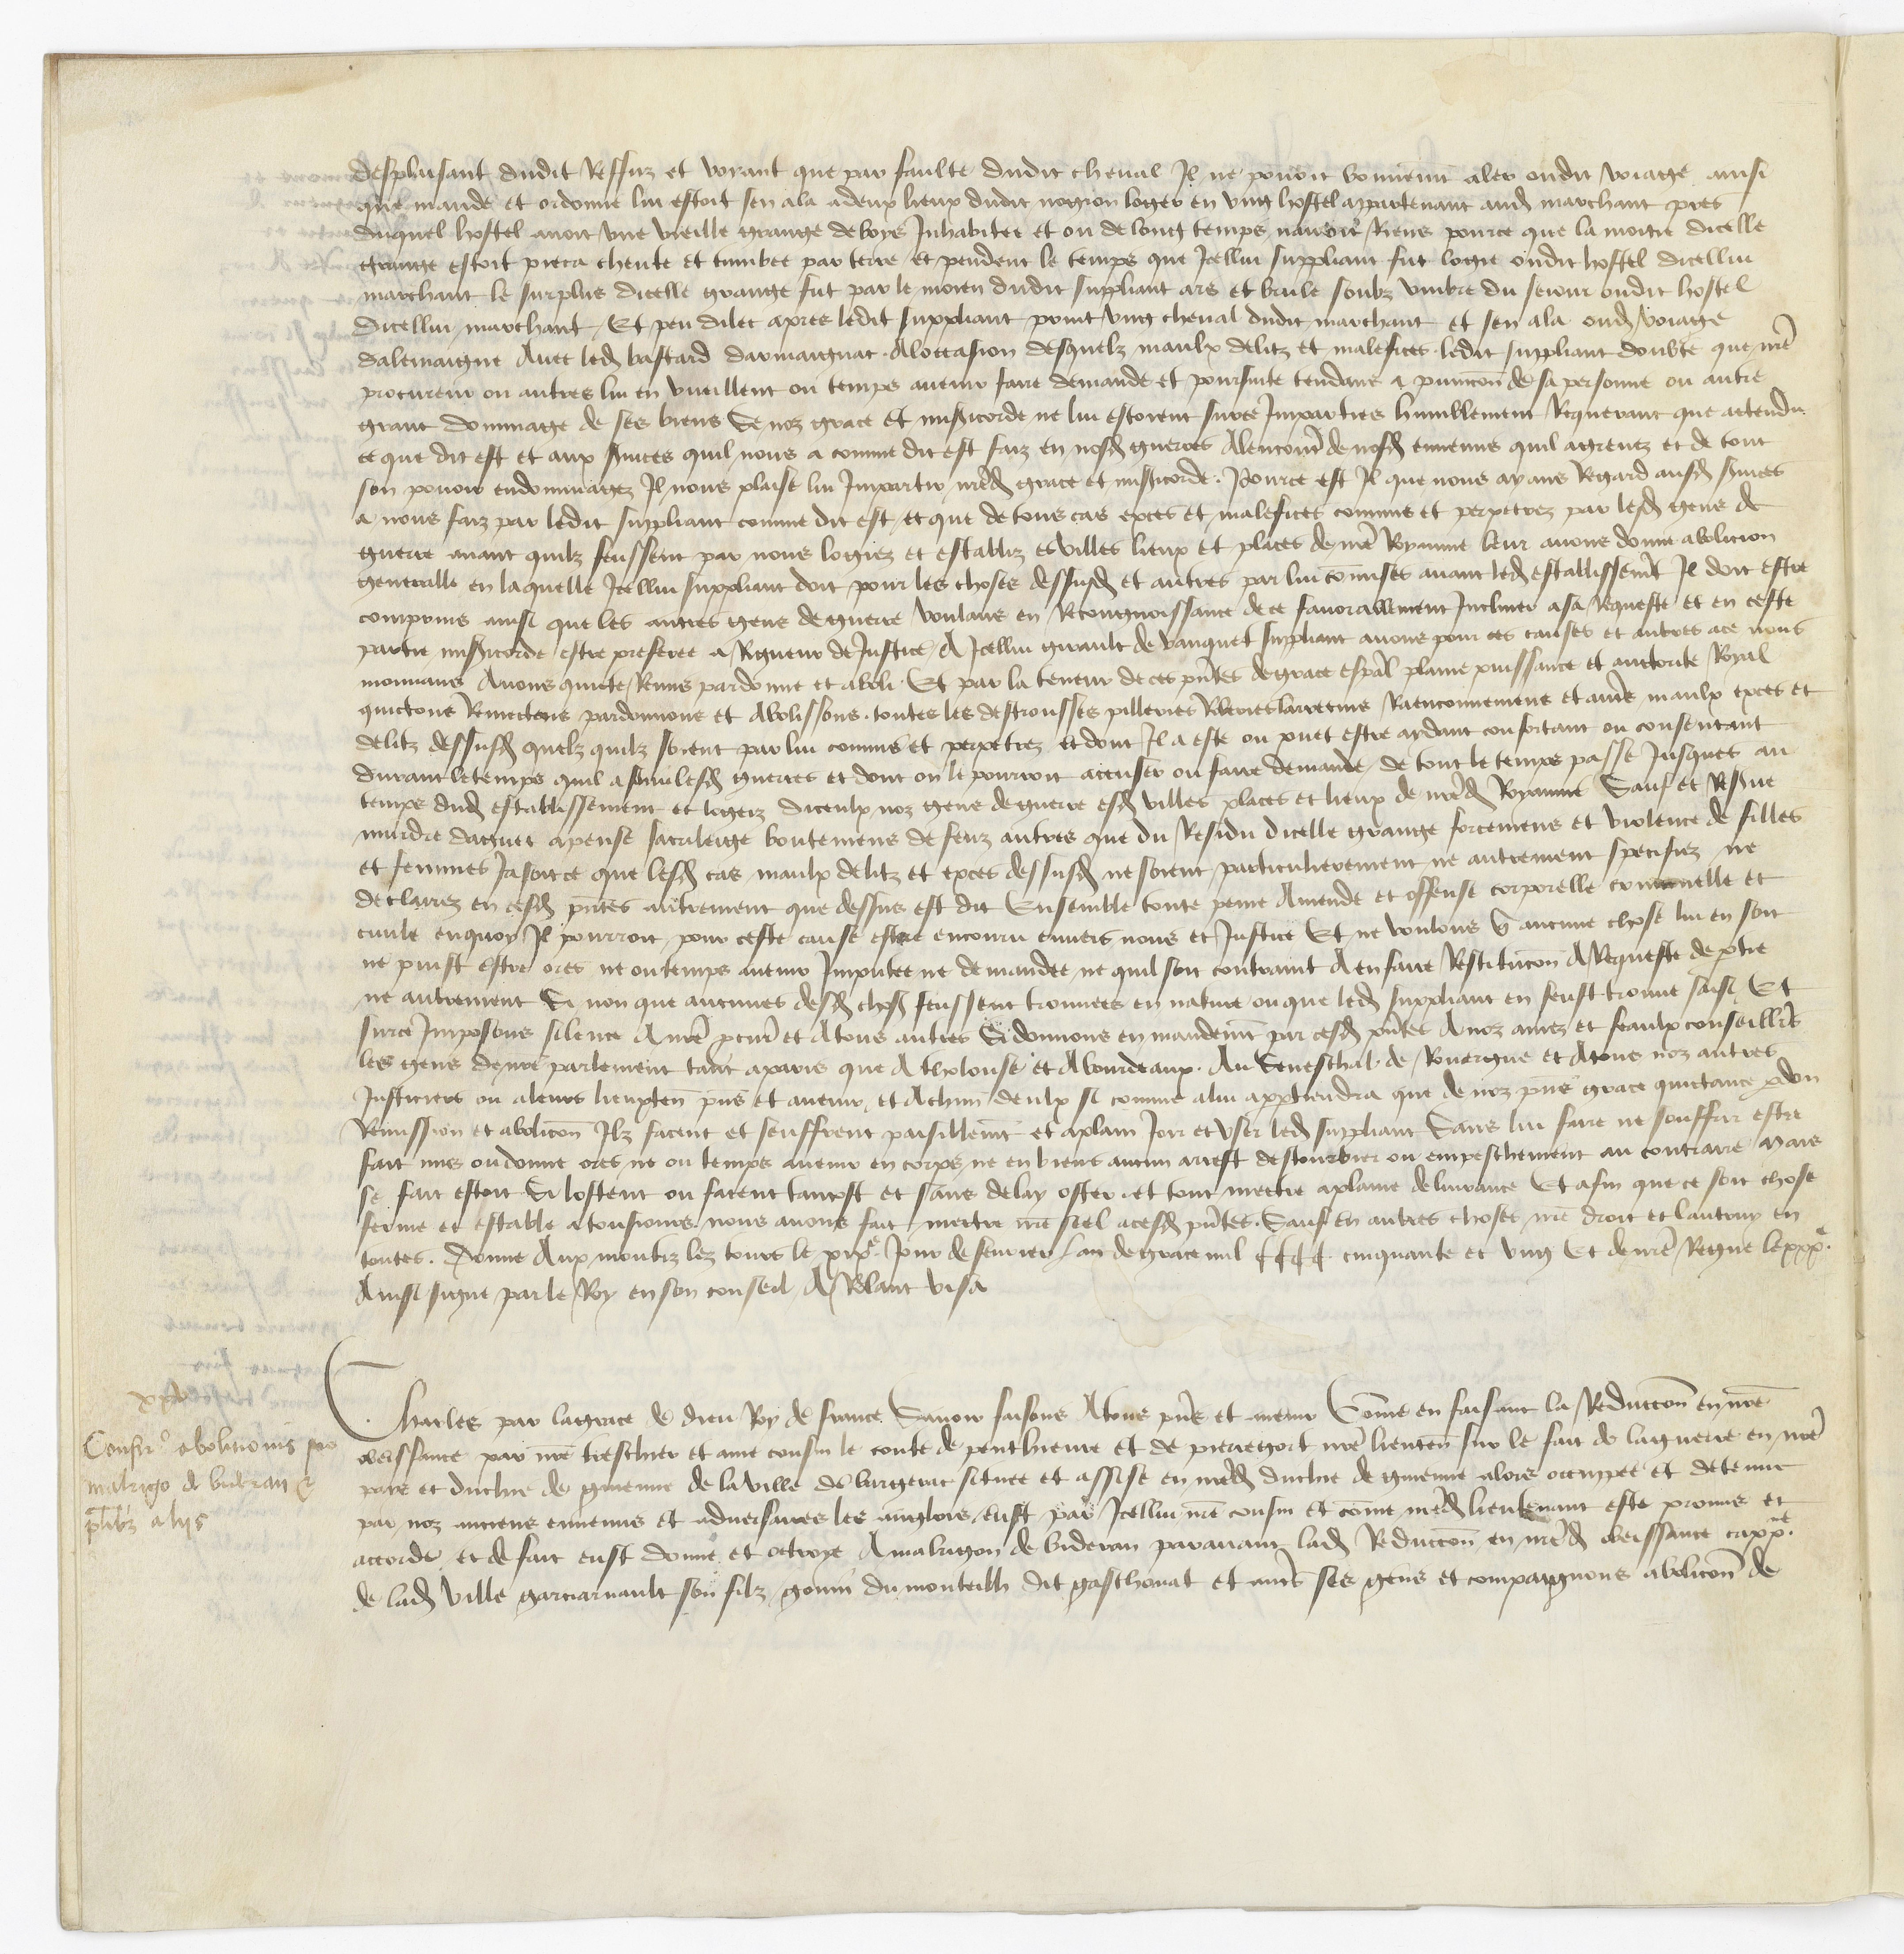 desplaisant dudit Reffuz et voyant que par faulte dudit cheual Il ne pouoit bonnemt aler oudit voiage ainsi
que mande et ordonne lui estoit sen ala a deux lieux dudit loger en vng hostel appartenant aud marchant pres
duquel hostel auoit vne vieille grange de boys Inhabitee et ou de long temps Riens pource que la moitie dicelle
grange estoit pieca cheute et tumbee par terre et pendent le temps que Icellui suppliant fut logie oudit hostel dicellui
marchant le surplus dicelle grange fut par le moien dudit suppliant ars et brule soubz vmbre du seiour oudit hostel
dicellui marchant Et peu dilec apres ledit suppliant print vng cheual dudit marchant et sen ala oud voiage
dalemaigne Auec led bastard darmaignac. A loccasion desquelz maulx deliz et malefices ledit suppliant doubte que nre
procureur ou autres lui en vueillent ou temps auenir faire demande et poursuite tendans a punicon de sa personne ou autre
grant dommage de ses biens Se noz grace et misicorde ne lui estoient surce Imparties humblement Requerant que actendu
ce que dit est et aux suices quil nous a comme dit est faiz en nosd guerres Alencontre de nosd ennemis quil a greuez et de tout
son pouoir endommagez Il nous plaise lui Impartir nred grace et misicorde. Pource est Il que nous ayans Regard ausd suices
a nous faiz par ledit suppliant comme dit est et que de tous cas exces et malefices commis et perpetrez par lesd gens de
guerre auant quilz feussent par nous logiez et establiz es villes lieux et places de nre Royaume leur auons donne abolicion
generalle en laquelle Icellui suppliant doit pour les choses dessusd et autres par lui comises auant led establissemt Il doit estre
comprins ainsi que les autres gens de guerre voulans en Recongnoissance de ce fauorablement Incliner a sa Requeste et en ceste
partie misicorde estre preferee a Rigueur de Justice A Icellui girault de vauquet suppliant auons pour ces causes et autres a ce nous
mouuans Auons quicte Remis pardonne et aboli Et par la teneur de ces pntes de grace espal plaine puissance et auctorite Royal
quictons Remectons pardonnons et Abolissons toutes les destrousses pilleries Roberies larrecins Raenconnemens et autrs maulx exces et
deliz dessusd quelz quilz soient par lui commis et perpetrez et dont Il a este ou puet estre aydant confortant ou consentant
durant le temps quil a suiui lesd guerres et dont on le pourroit accuser ou faire demande de tout le temps passe Jusques au
temps dud establissement et logeiz diceulx noz gens de guerre esd villes places et lieux de nred Royaume Sauf et Resue
murdre daguet apense sacrileige boutemens de feuz autres que du Residu dicelle grange forcemens et violence de filles
et femmes Jasoit ce que lesd cas maulx deliz et exces dessusd ne soient particulierement ne autrement specifiez ne
declairez en cesd pntes autrement que dessus est dit Ensemble toute peine Amende et offense corporelle criminelle et
ciuile en quoy Il pourroit pour ceste cause estre encouru enuers nous et Justice Et ne voulons q aucune chose lui en soit
ne puist estre ores ne ou temps auenir Imputee ne demandee ne quil soit contraint A en faire Restitucon A Requeste de ptie
ne autrement Si non que aucunes desd choses feussent trouuees en nature ou que led suppliant en feust trouue saisi Et
surce Imposons silence A nre pcur et A tous autres Si donnons en mandemt par cesd pntes A noz amez et feaulx conseillrs
les gens de nre parlement tant a paris que A tholouse et A bourdeaux. Au Seneschal de Rouergue et A tous noz autres
Justiciers ou a leurs lieuxten pns et auenir et A chun deulx si comme a lui apptiendra que de noz pns grace quictance pdon
Remission et abolicon Ilz facent et seuffrent paisiblemt et a plain Joir et vser led suppliant Sans lui faire ne souffrir estre
fait mis ou donne ores ne ou temps auenir en corps ne en biens aucun arrest destourbier ou empeschement au contraire Mais
se fait estoit si lostent ou facent tantost et sans delay oster et tout mectre a plaine deliurance Et afin que ce soit chose
ferme et estable a tousiours nous auons fait mectre nre seel a cesd pntes. Sauf en autres choses nre droit et lautruy en
toutes. Donne Aux montiz lez tours le xixe Jour de feurier lan de grace mil cccc cinquante et vng Et de nre Regne le xxxe.
Ainsi signe par le Roy en son conseil A Rolant visa
Charles par la grace de dieu Roy de france Sauoir faisons A tous pns et auenir Come en faisant la Reduccon en nre
obeissance par nre treschier et ame cousin le conte de penthieure et de pierregort nre lieuten sur le fait de la guerre en nre
pays et duchie de guienne de la ville de bargerac situee et assise en nred duchie de guienne alors occuppee et detenue
par noz anciens ennemis et aduersaires les anglois eust par Icellui nre cousin et come nred lieutenant este promis et
accorde et de fait eust donne et octroye A malrigon de bideran parauant lad Reduccon en nred obeissance cappne.
de lad ville garciarnault son filz gonin du monteilh dit gasthouat et autrs ses gens et compaignons abolicon de
Confir° abolitionis pro
malrigo de bideran &
plibz aliis